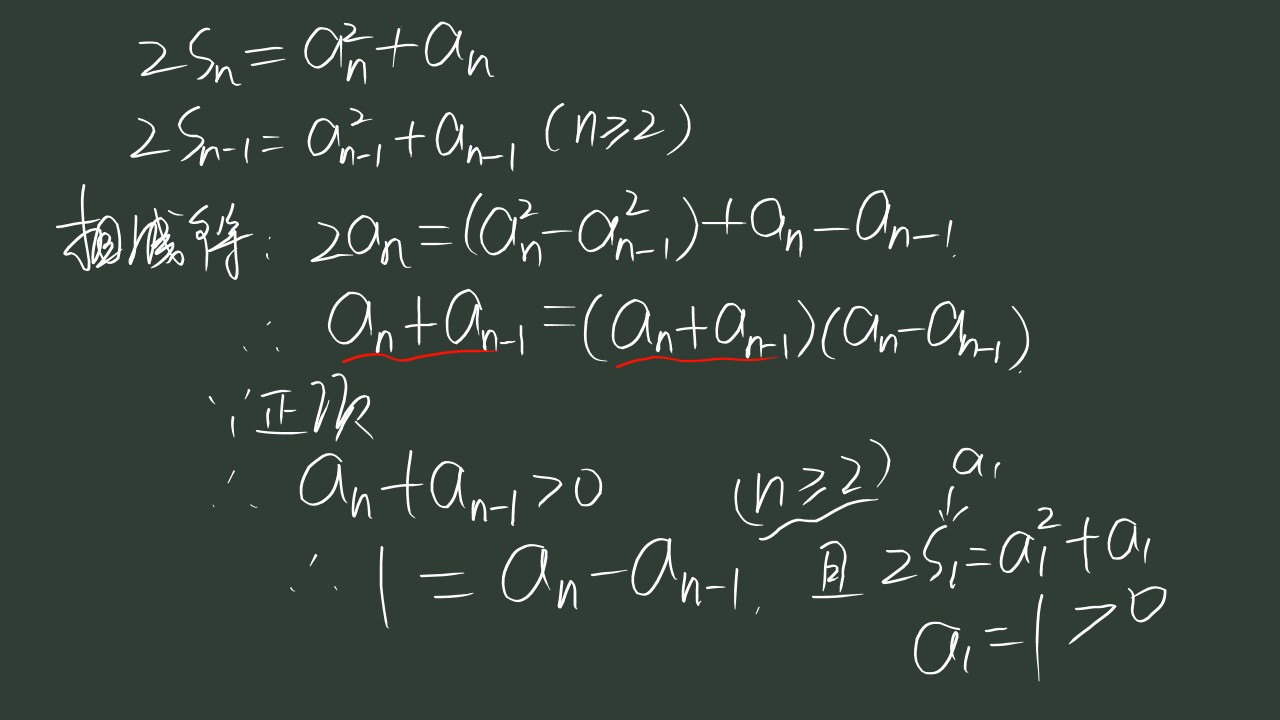 2Sₙ = aₙ² + aₙ
2Sₙ₋₁ = aₙ₋₁² + aₙ₋₁ (n≥2)
相减得: 2aₙ = (aₙ² - aₙ₋₁²) + aₙ - aₙ₋₁.
∴ aₙ + aₙ₋₁ = (aₙ + aₙ₋₁)(aₙ - aₙ₋₁).
∵ 正项
∴ aₙ + aₙ₋₁ > 0 (n≥2)
∴ 1 = aₙ - aₙ₋₁.
a₁
且 2S₁ = a₁² + a₁
a₁ = 1 > 0